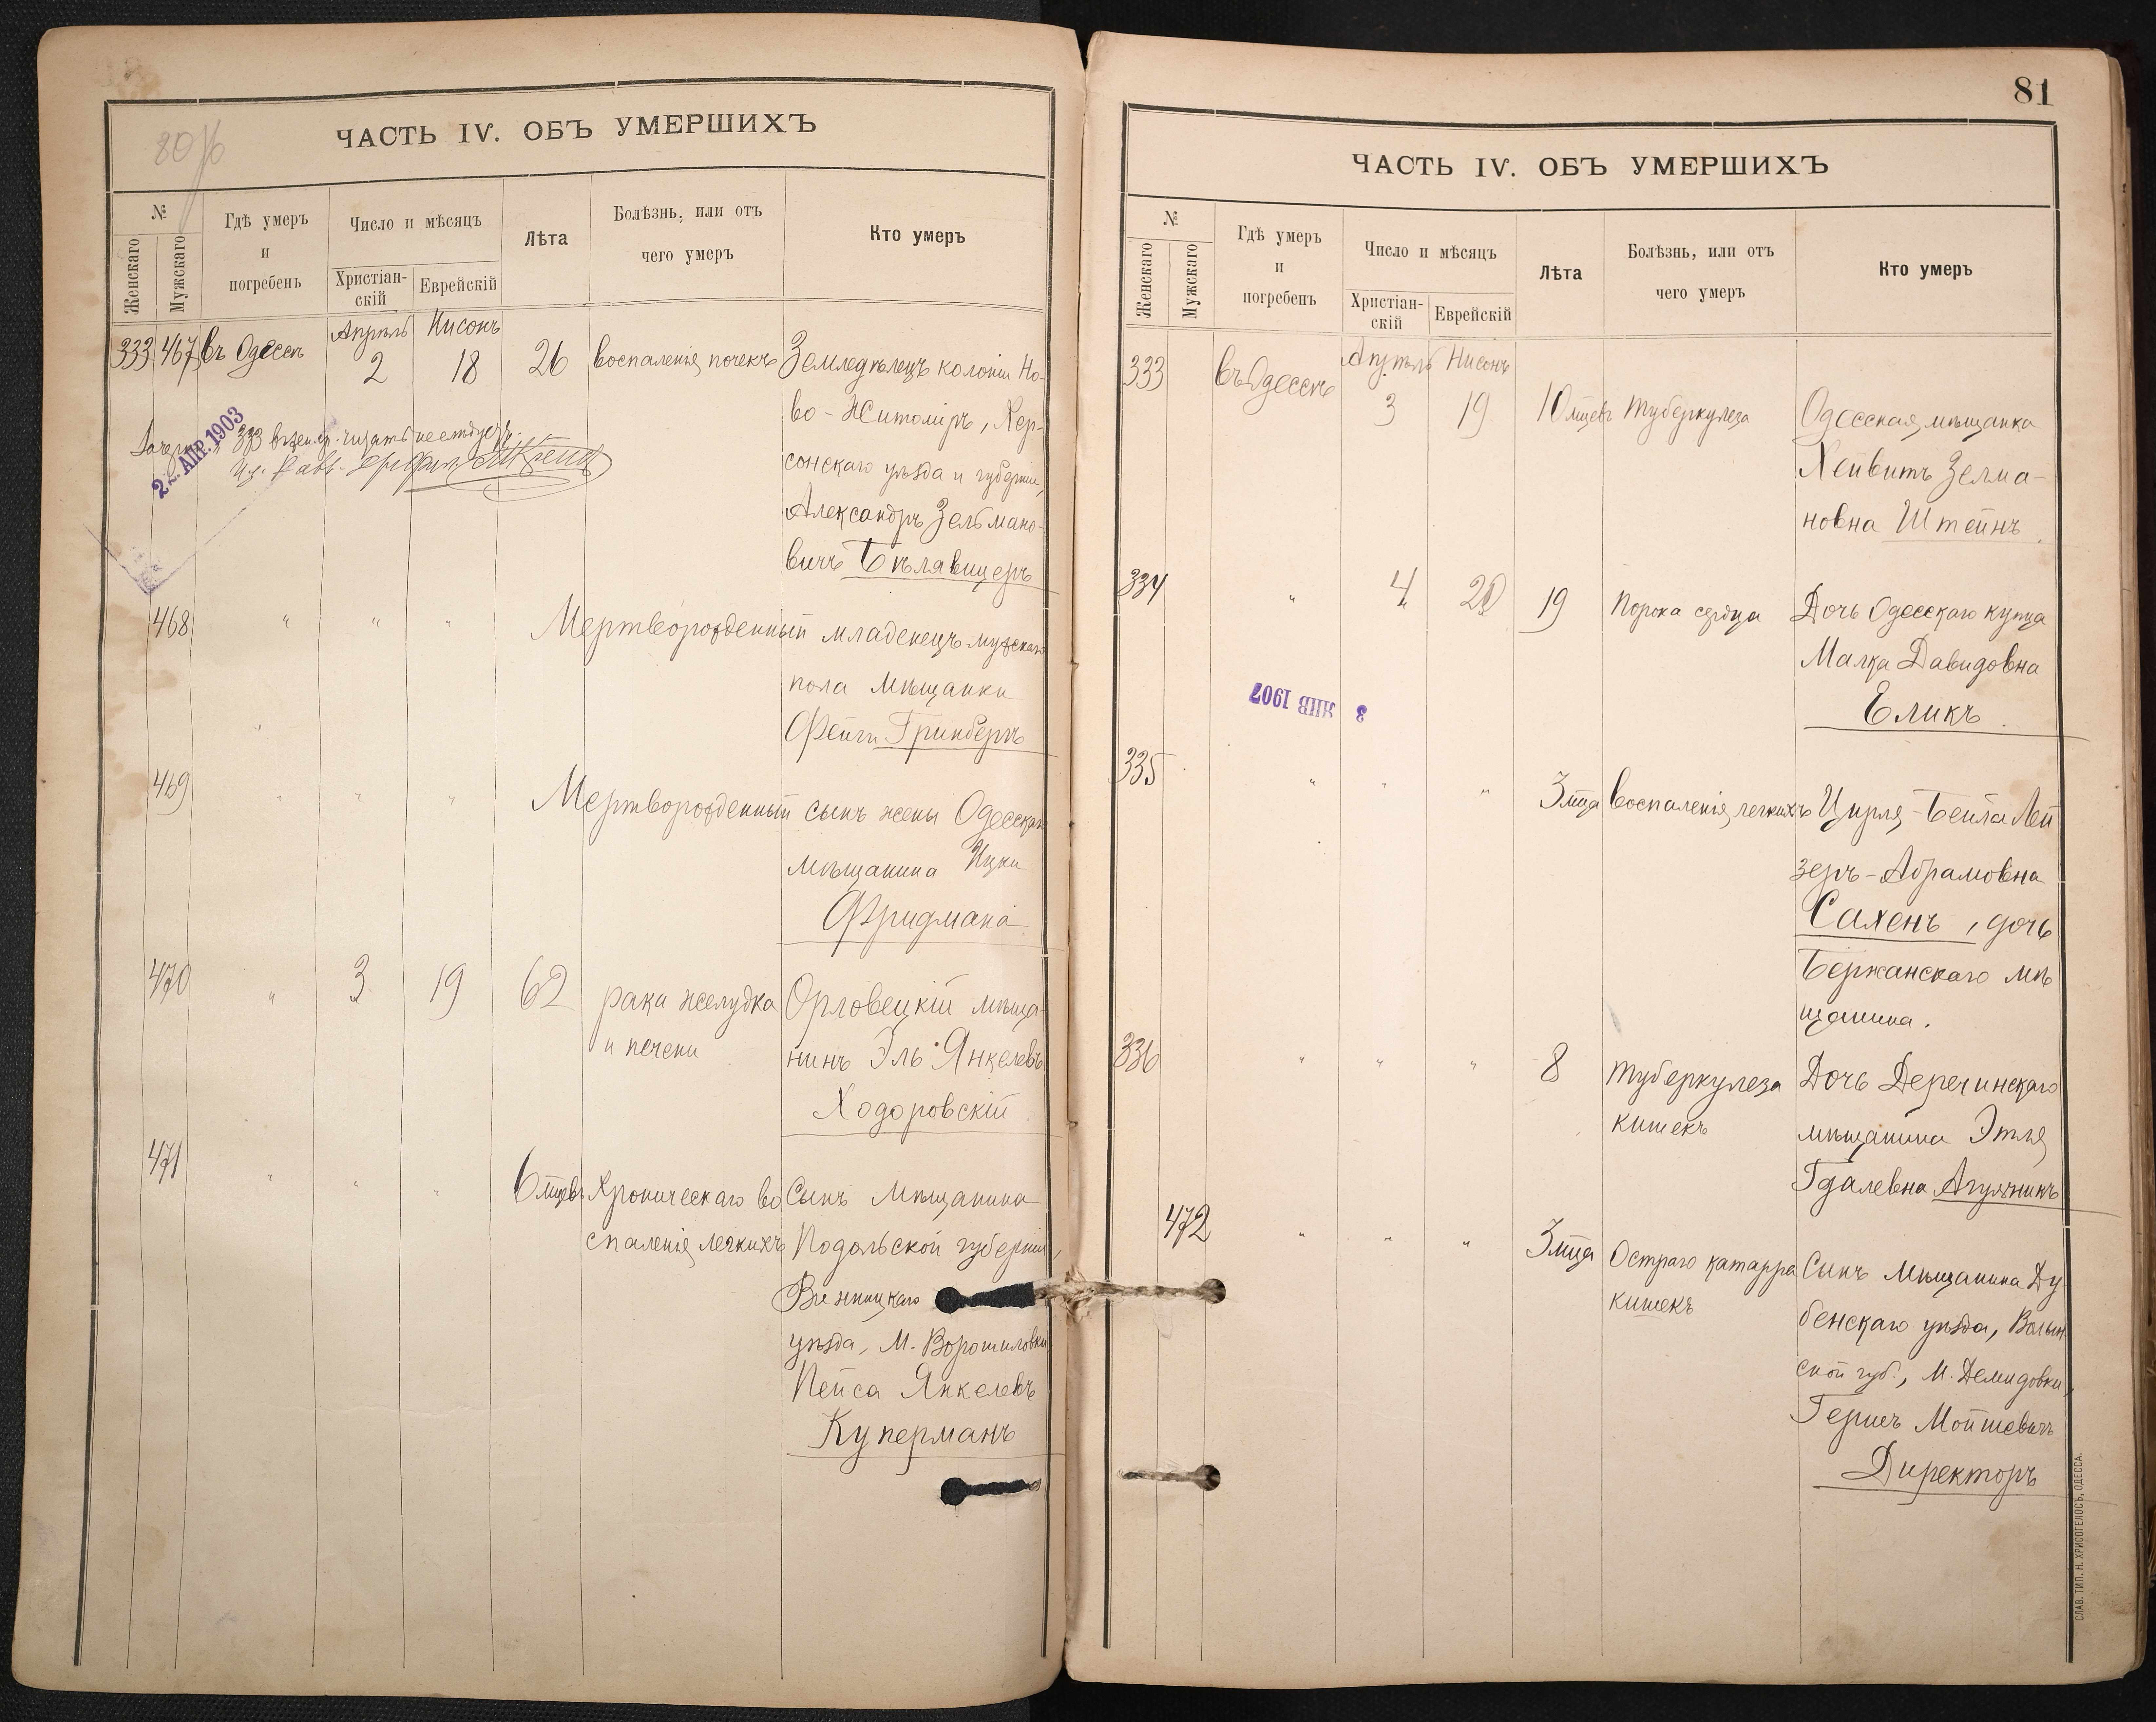 80 об
ЧАСТЬ IV. ОБЪ УМЕРШИХЪ
№
Женскаго
Мужскаго
Гдѣ умеръ
и
погребенъ
Число и мѣсяцъ
Христіан-
скій
Еврейскій
Лѣта
Болѣзнь, или отъ
чего умеръ
Кто умеръ
333 467 въ Одессѣ Апрѣль 2 Нисонъ 18 26 воспаленія почекъ Земледѣлецъ колоніи Но-
во-Житоміръ, Хер-
сонскаго уѣзда и губерніи,
Александръ Зельмано-
вичъ Бѣлявицеръ
333 в жен. гр. читать не слѣдуетъ.
22. АПР. 1903
468 " " " Мертворожденный младенецъ мужскаго
пола мѣщанки
Фейги Гринбергъ
469 " " " Мертворожденный сынъ жены Одесскаго
мѣщанина Ицки
Фридмана
470 " 3 19 62 рака желудка Орловецкій мѣща-
и печени нинъ Эль Янкелевъ
Ходоровскій
471 " " " 6 мцевъ Хроническаго во Сынъ мѣщанина
спаленія легкихъ Подольской губерніи,
Винницкаго
уѣзда, М. Ворошиловки
Пейса Янкелевъ
Куперманъ
81
ЧАСТЬ IV. ОБЪ УМЕРШИХЪ
№
Женскаго
Мужскаго
Гдѣ умеръ
и
погребенъ
Число и мѣсяцъ
Христіан-
скій
Еврейскій
Лѣта
Болѣзнь, или отъ
чего умеръ
Кто умеръ
333 въ Одессѣ Апрѣль 3 Нисонъ 19 10 мцевъ туберкулеза Одесская мѣщанка
Хейвитъ Зелма-
новна Штейнъ.
334 " 4 20 19 порока сердца Дочь Одесскаго купца
Малка Давидовна
Еликъ.
3 ЯНВ 1907
335 " " " 3 мца воспаленія легкихъ Цирля-Бейла Лей
зеръ-Абрамовна
Сахенъ, дочь
Бержанскаго мѣ
щанина.
336 " " " 8 туберкулеза Дочь Деречинскаго
кишекъ мѣщанина Этля
Гдалевна Агулникъ
472 " " " 3 мца Остраго катарра Сынъ мѣщанина Ду
кишекъ бенскаго уѣзда, Волын
ской губ., М. Демидовки,
Гершъ Мойшевичъ
Директоръ
СЛАВ. ТИП. Н. ХРИСОГЕЛОСЪ, ОДЕССА.